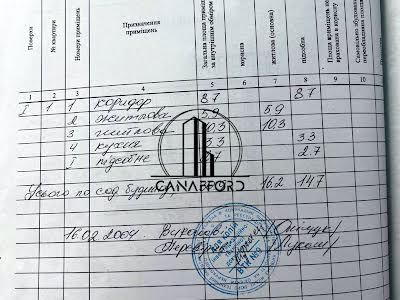 Поверхи
№ квартири
Номери приміщень
Призначення приміщень
Загальна площа
за внутрішнім обміром
корисна
житлова (основна)
підсобна
Площа приміщень не
врахована в корисну
Самовільно збудована
переобладнана площа
1 2 3 4 5 6 7 8 9 10
I 1 1 коридор 8.7 8.7
2 житлова 5.9 5.9
3 житлова 10.3 10.3
4 кухня 3.3 3.3
5 підсобне 2.7
CANAFFORD
Усього по сад будинку, 16.2 14.7
16.02.2004. Виконав
Перевірив